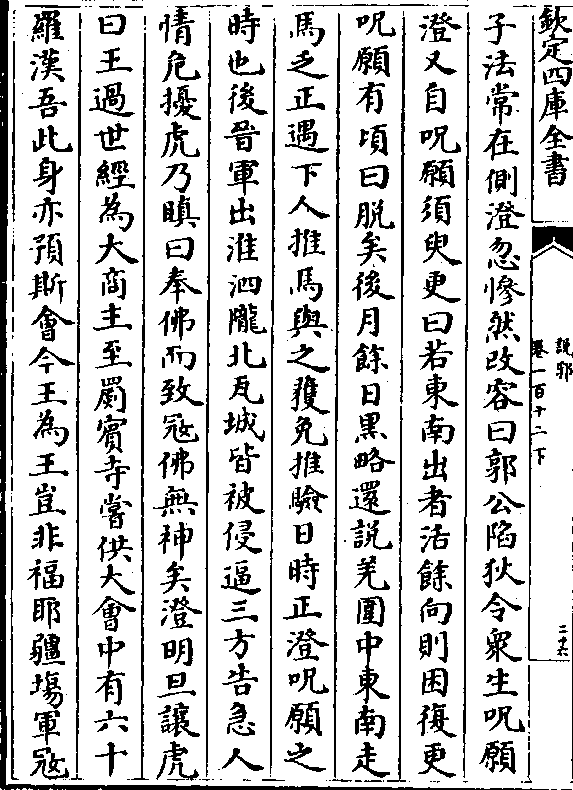 欽定四庫全書
說郛
卷一百十二下
二十六
子法常在側澄忽慘然改容曰郭公陷狄令衆生呪願
澄又自呪願須臾更曰若東南出者活餘向則困復更
呪願有頃曰脱矣後月餘日黒略還說羌圍中東南走
馬乏正遇下人推馬與之獲免推驗日時正澄呪願之
時也後晉軍出淮泗隴北瓦城皆被侵逼三方告急人
情危擾虎乃瞋曰奉佛而致冦佛無神矣澄明旦讓虎
曰王過世經為大商主至罽賓寺嘗供大會中有六十
羅漢吾此身亦預斯會今王為王豈非福耶疆塲軍冦